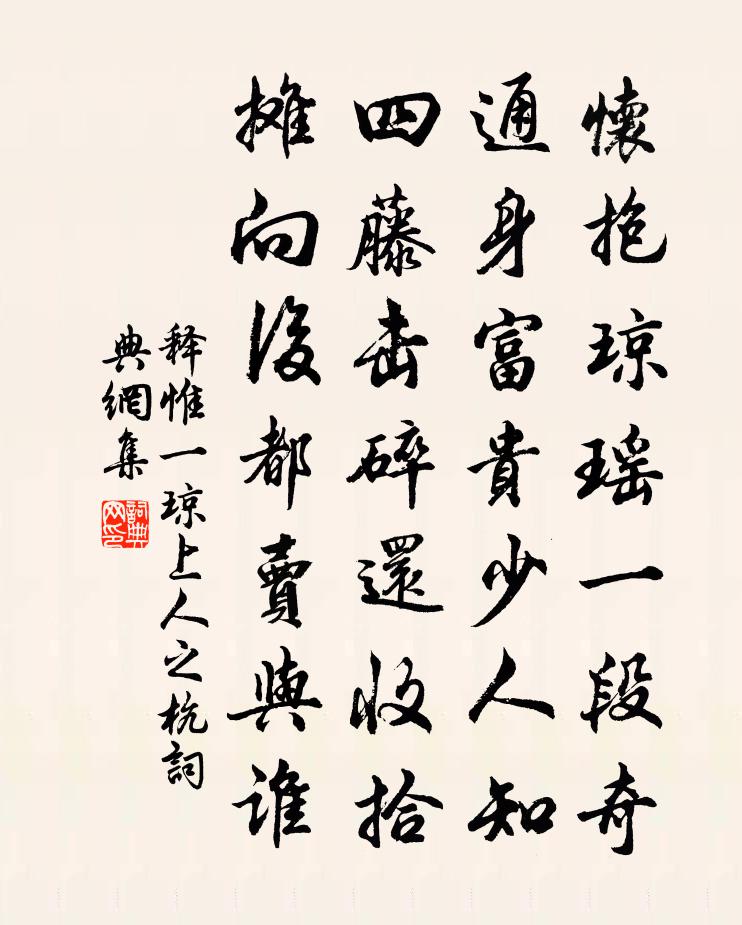 懷抱琼瑶一段奇
通身富貴少人知
四藤击碎還收拾
摊向後都賣與谁
释惟一琼上人之杭詞
典網集
詞典网印